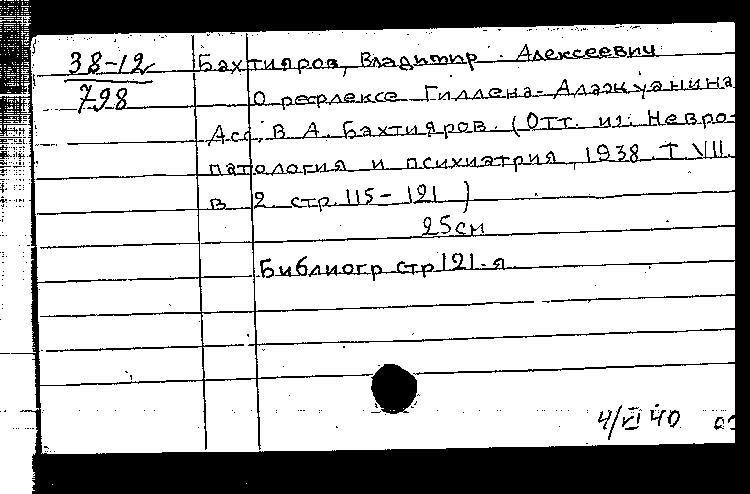 38-12
798
Бахтияров, Владимир Алексеевич
О рефлексе Гиллена-Алажуанина
Асс. В. А. Бахтияров. (Отт. из: Невро-
патология и психиатрия, 1938. Т VII.
в 2 стр. 115-121)
25см
Библиогр стр 121-я
4/VI 40